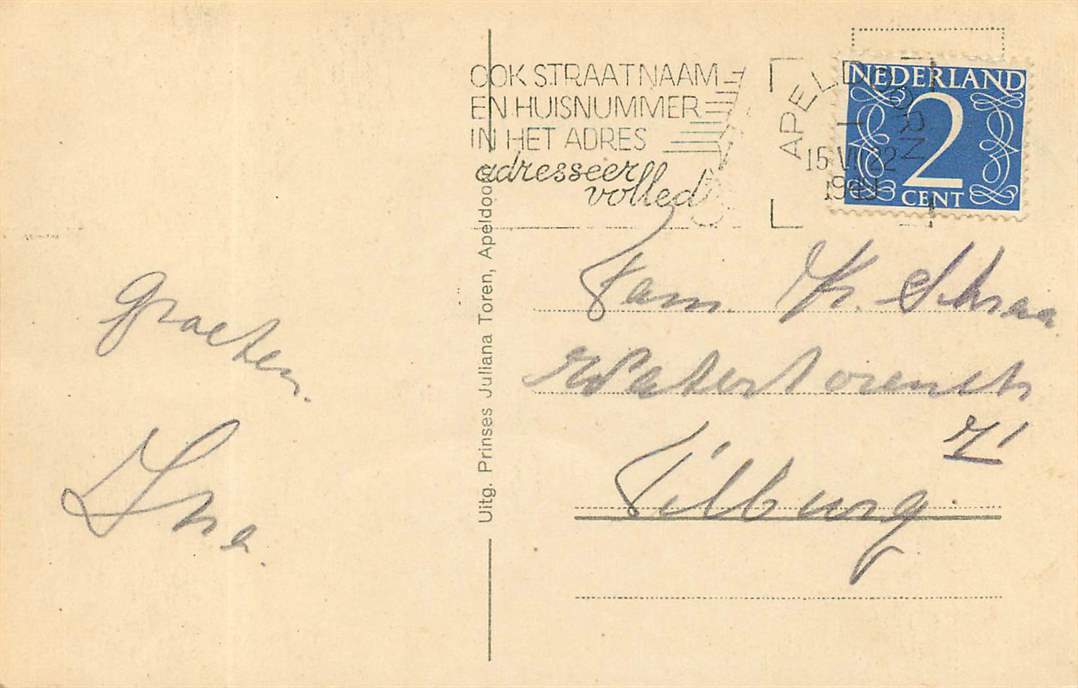 OOK STRAATNAAM
EN HUISNUMMER
IN HET ADRES
adresseer
volled
APELDOORN
1
15 VI 22
1949
NEDERLAND
2
CENT
Groeten
Ina
Uitg. Prinses Juliana Toren, Apeldoorn
Fam. Schraa
Watertorenstr
Tilburg.